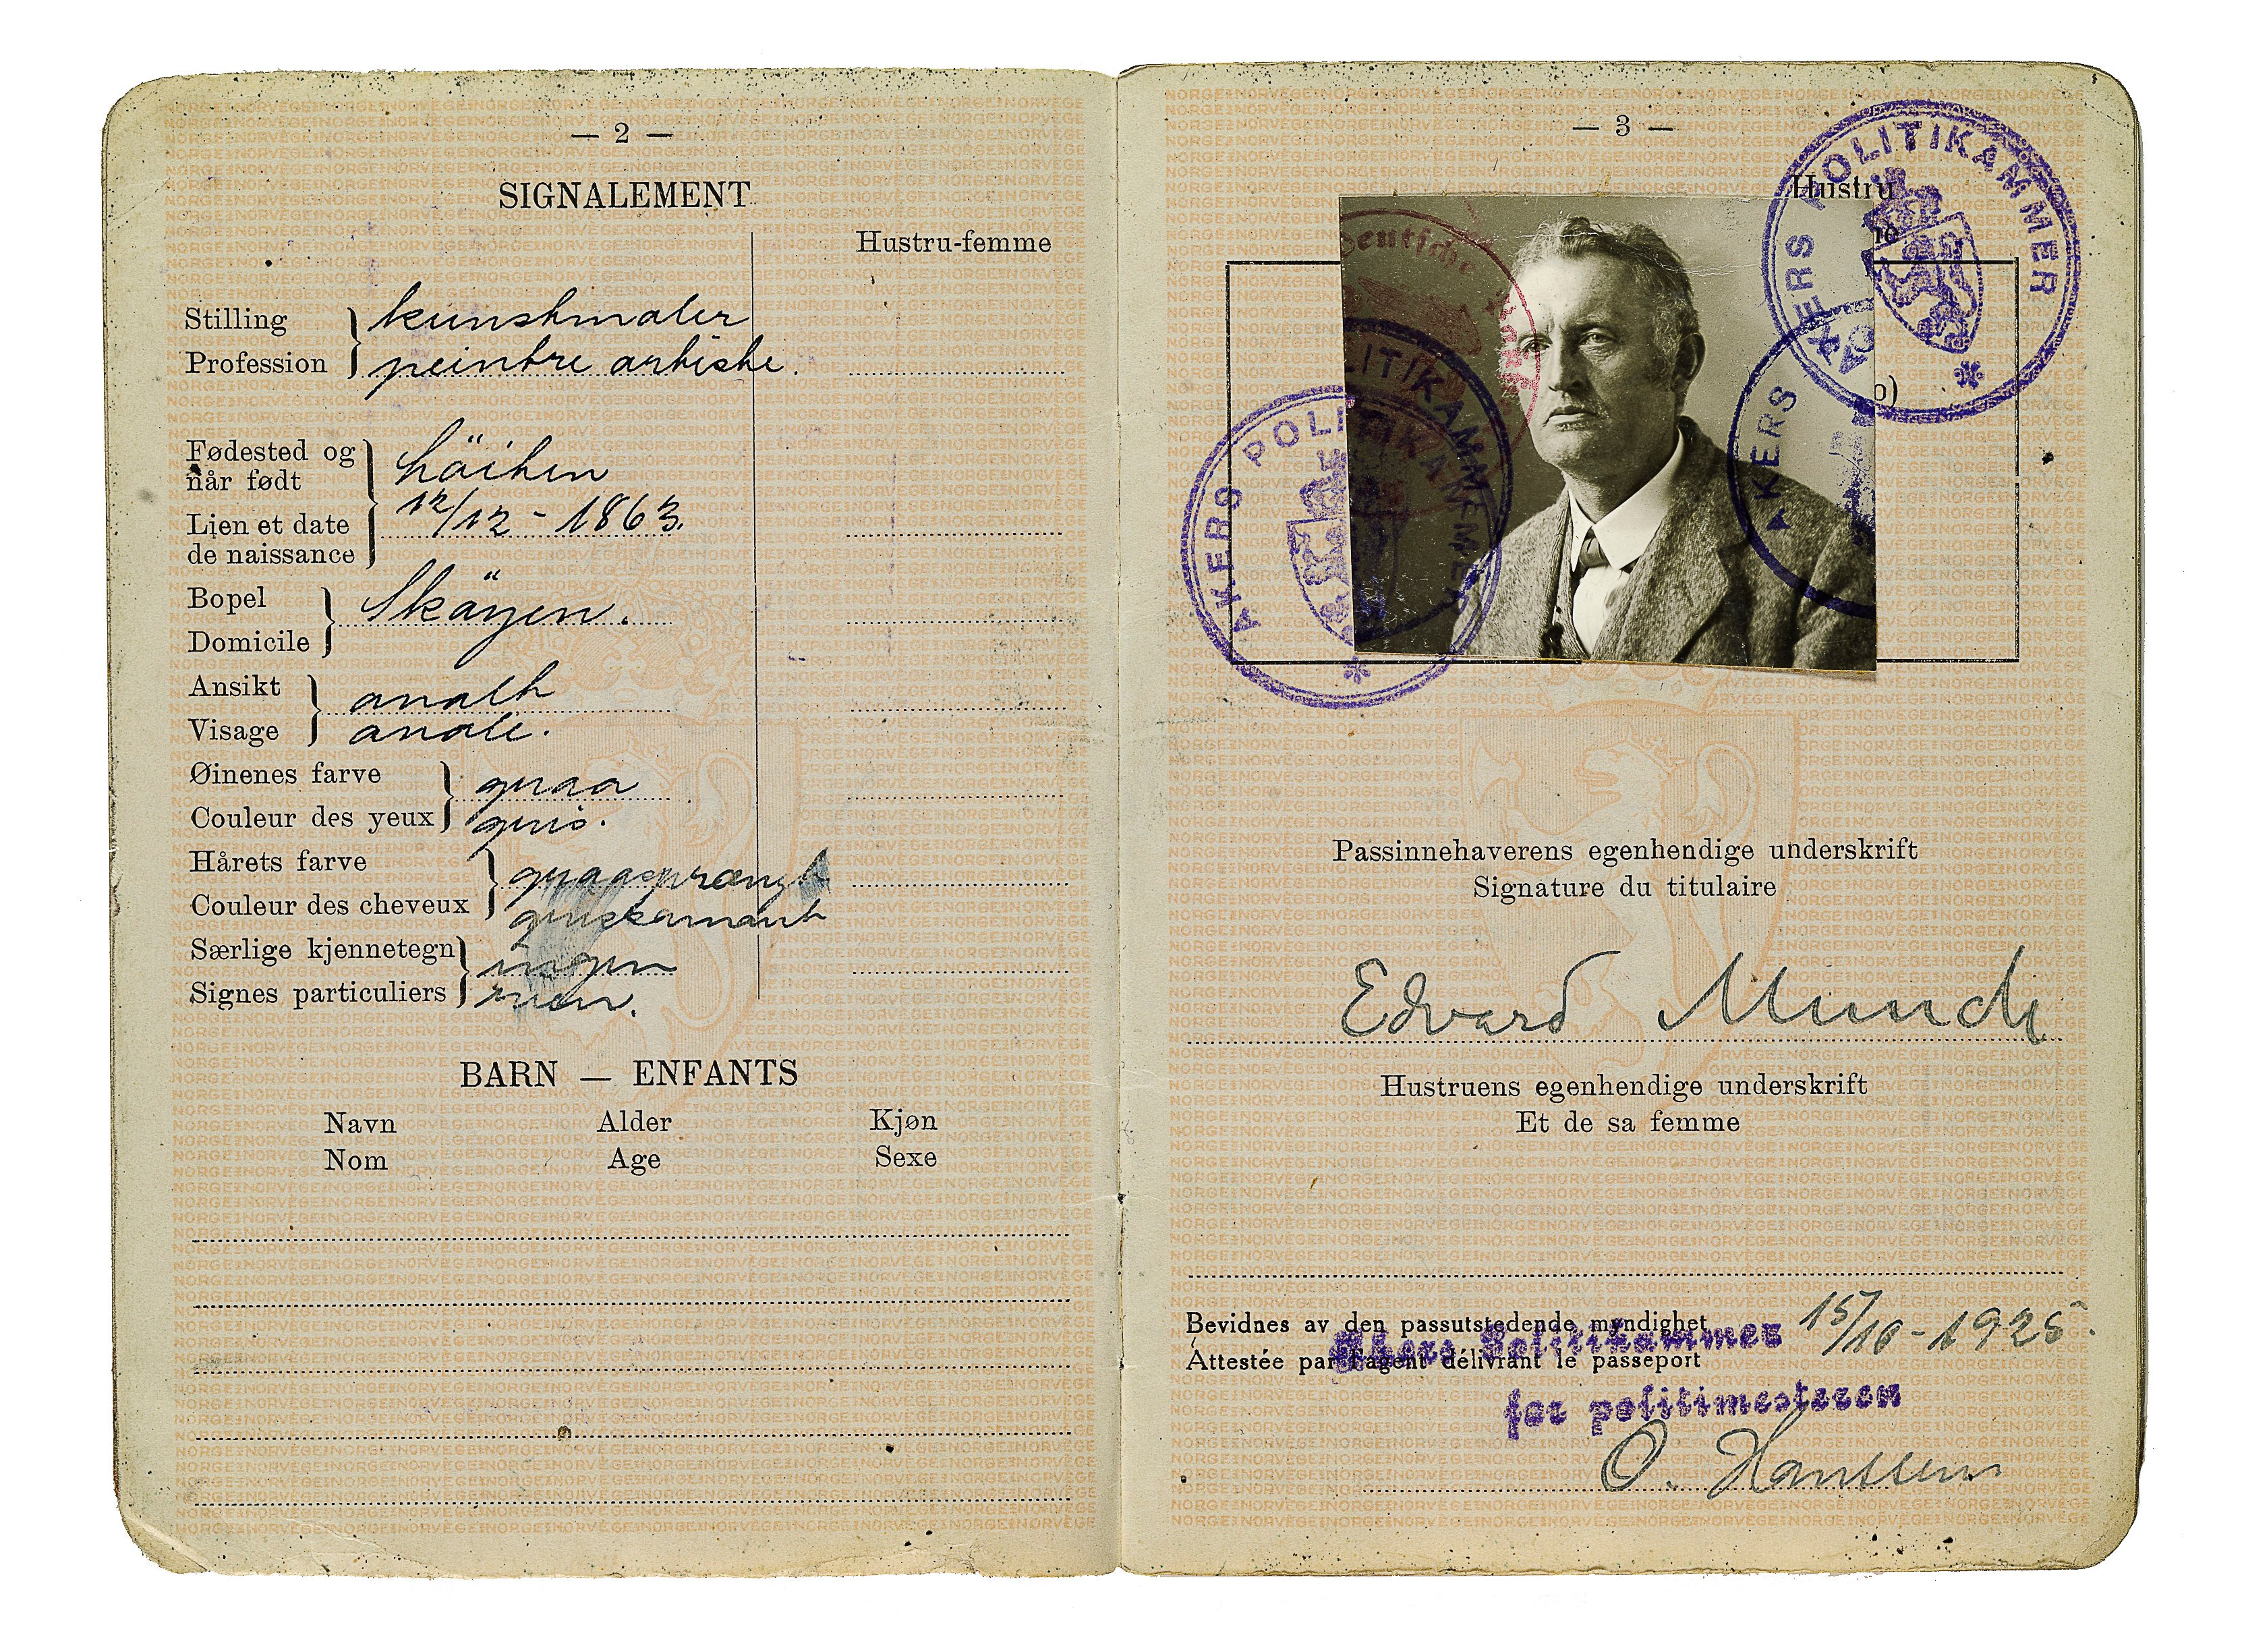 — 2 —
SIGNALEMENT
Hustru-femme
Stilling
kunstmaler
Profession
peintre artiste.
Fødested og
når født
Löiten
Lien et date
de naissance
12/12 - 1863.
Bopel
Domicile
Sköyen.
Ansikt
ovalt
Visage
ovale.
Øinenes farve
graa
Couleur des yeux
gris.
Hårets farve
graasprængt
Couleur des cheveux
Særlige kjennetegn
ingen
Signes particuliers
BARN — ENFANTS
Navn Alder Kjøn
Nom Age Sexe
— 3 —
Hustru
AKERS POLITIKAMMER
Deutsche
POLITIKAMMER
AKERS POLITIKAMMER
AKERS
Passinnehaverens egenhendige underskrift
Signature du titulaire
Edvard Munch
Hustruens egenhendige underskrift
Et de sa femme
Bevidnes av den passutstedende myndighet
Akers Politikammer 15/10 - 1925.
Attestée par l'agent délivrant le passeport
for politimesteren
O. Hanssen